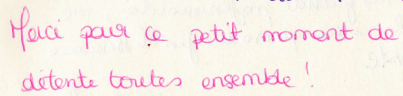 Merci pour ce petit moment de
détente toutes ensemble !